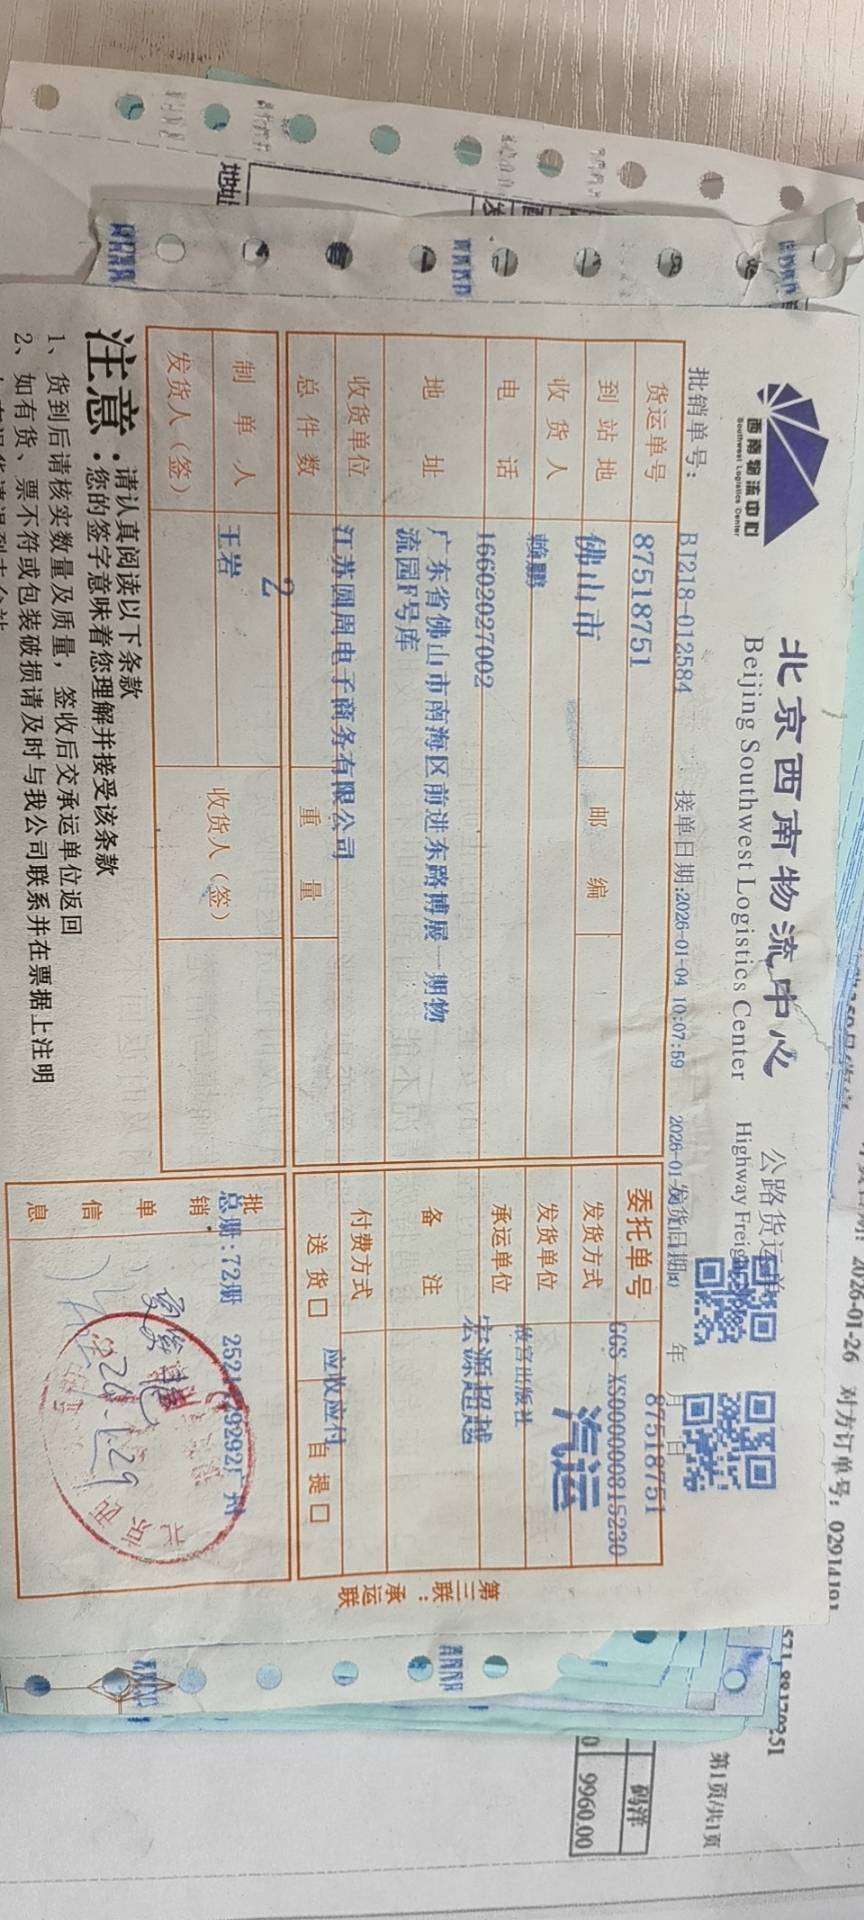 西南物流中心
Southwest Logistics Center
北京西南物流中心
Beijing Southwest Logistics Center
公路货运单
Highway Freig
批销单号: BT218-012584 接单日期:2026-01-04 10:07:59 发货日期 年 月 日
货运单号 87518751
委托单号 87518751
GGS-XS0000000815230
到站地 佛山市 邮编
发货方式 汽运
收货人 赖鹏
发货单位 故宫出版社
电话 16602027002
承运单位 宏源超越
地址 广东省佛山市南海区前进东路博展一期物
流园F号库
备注
收货单位 江苏圆周电子商务有限公司
付费方式 应收应付
总件数 2 重量
送货口 自提口
制单人 王岩 收货人(签)
发货人(签)
批销单信息
总册:72册
第三联:承运联
注意:请认真阅读以下条款
您的签字意味着您理解并接受该条款
1、货到后请核实数量及质量,签收后交承运单位返回
2、如有货、票不符或包装破损请及时与我公司联系并在票据上注明
地址
2026-01-26 对方订单号:
第1页/共1页
码洋
9960.00